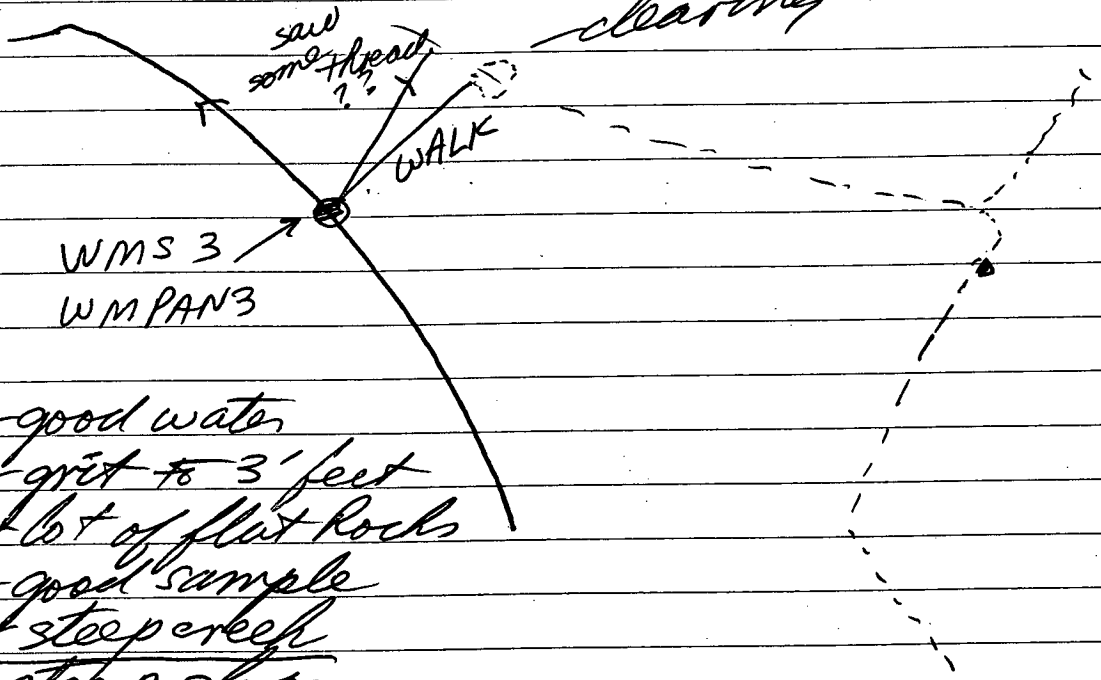 clearing
saw
some thread
??
WALK
WMS 3
WMPAN3
-good water
-grit to 3' feet
-lot of flat Rocks
-good sample
-steep creek